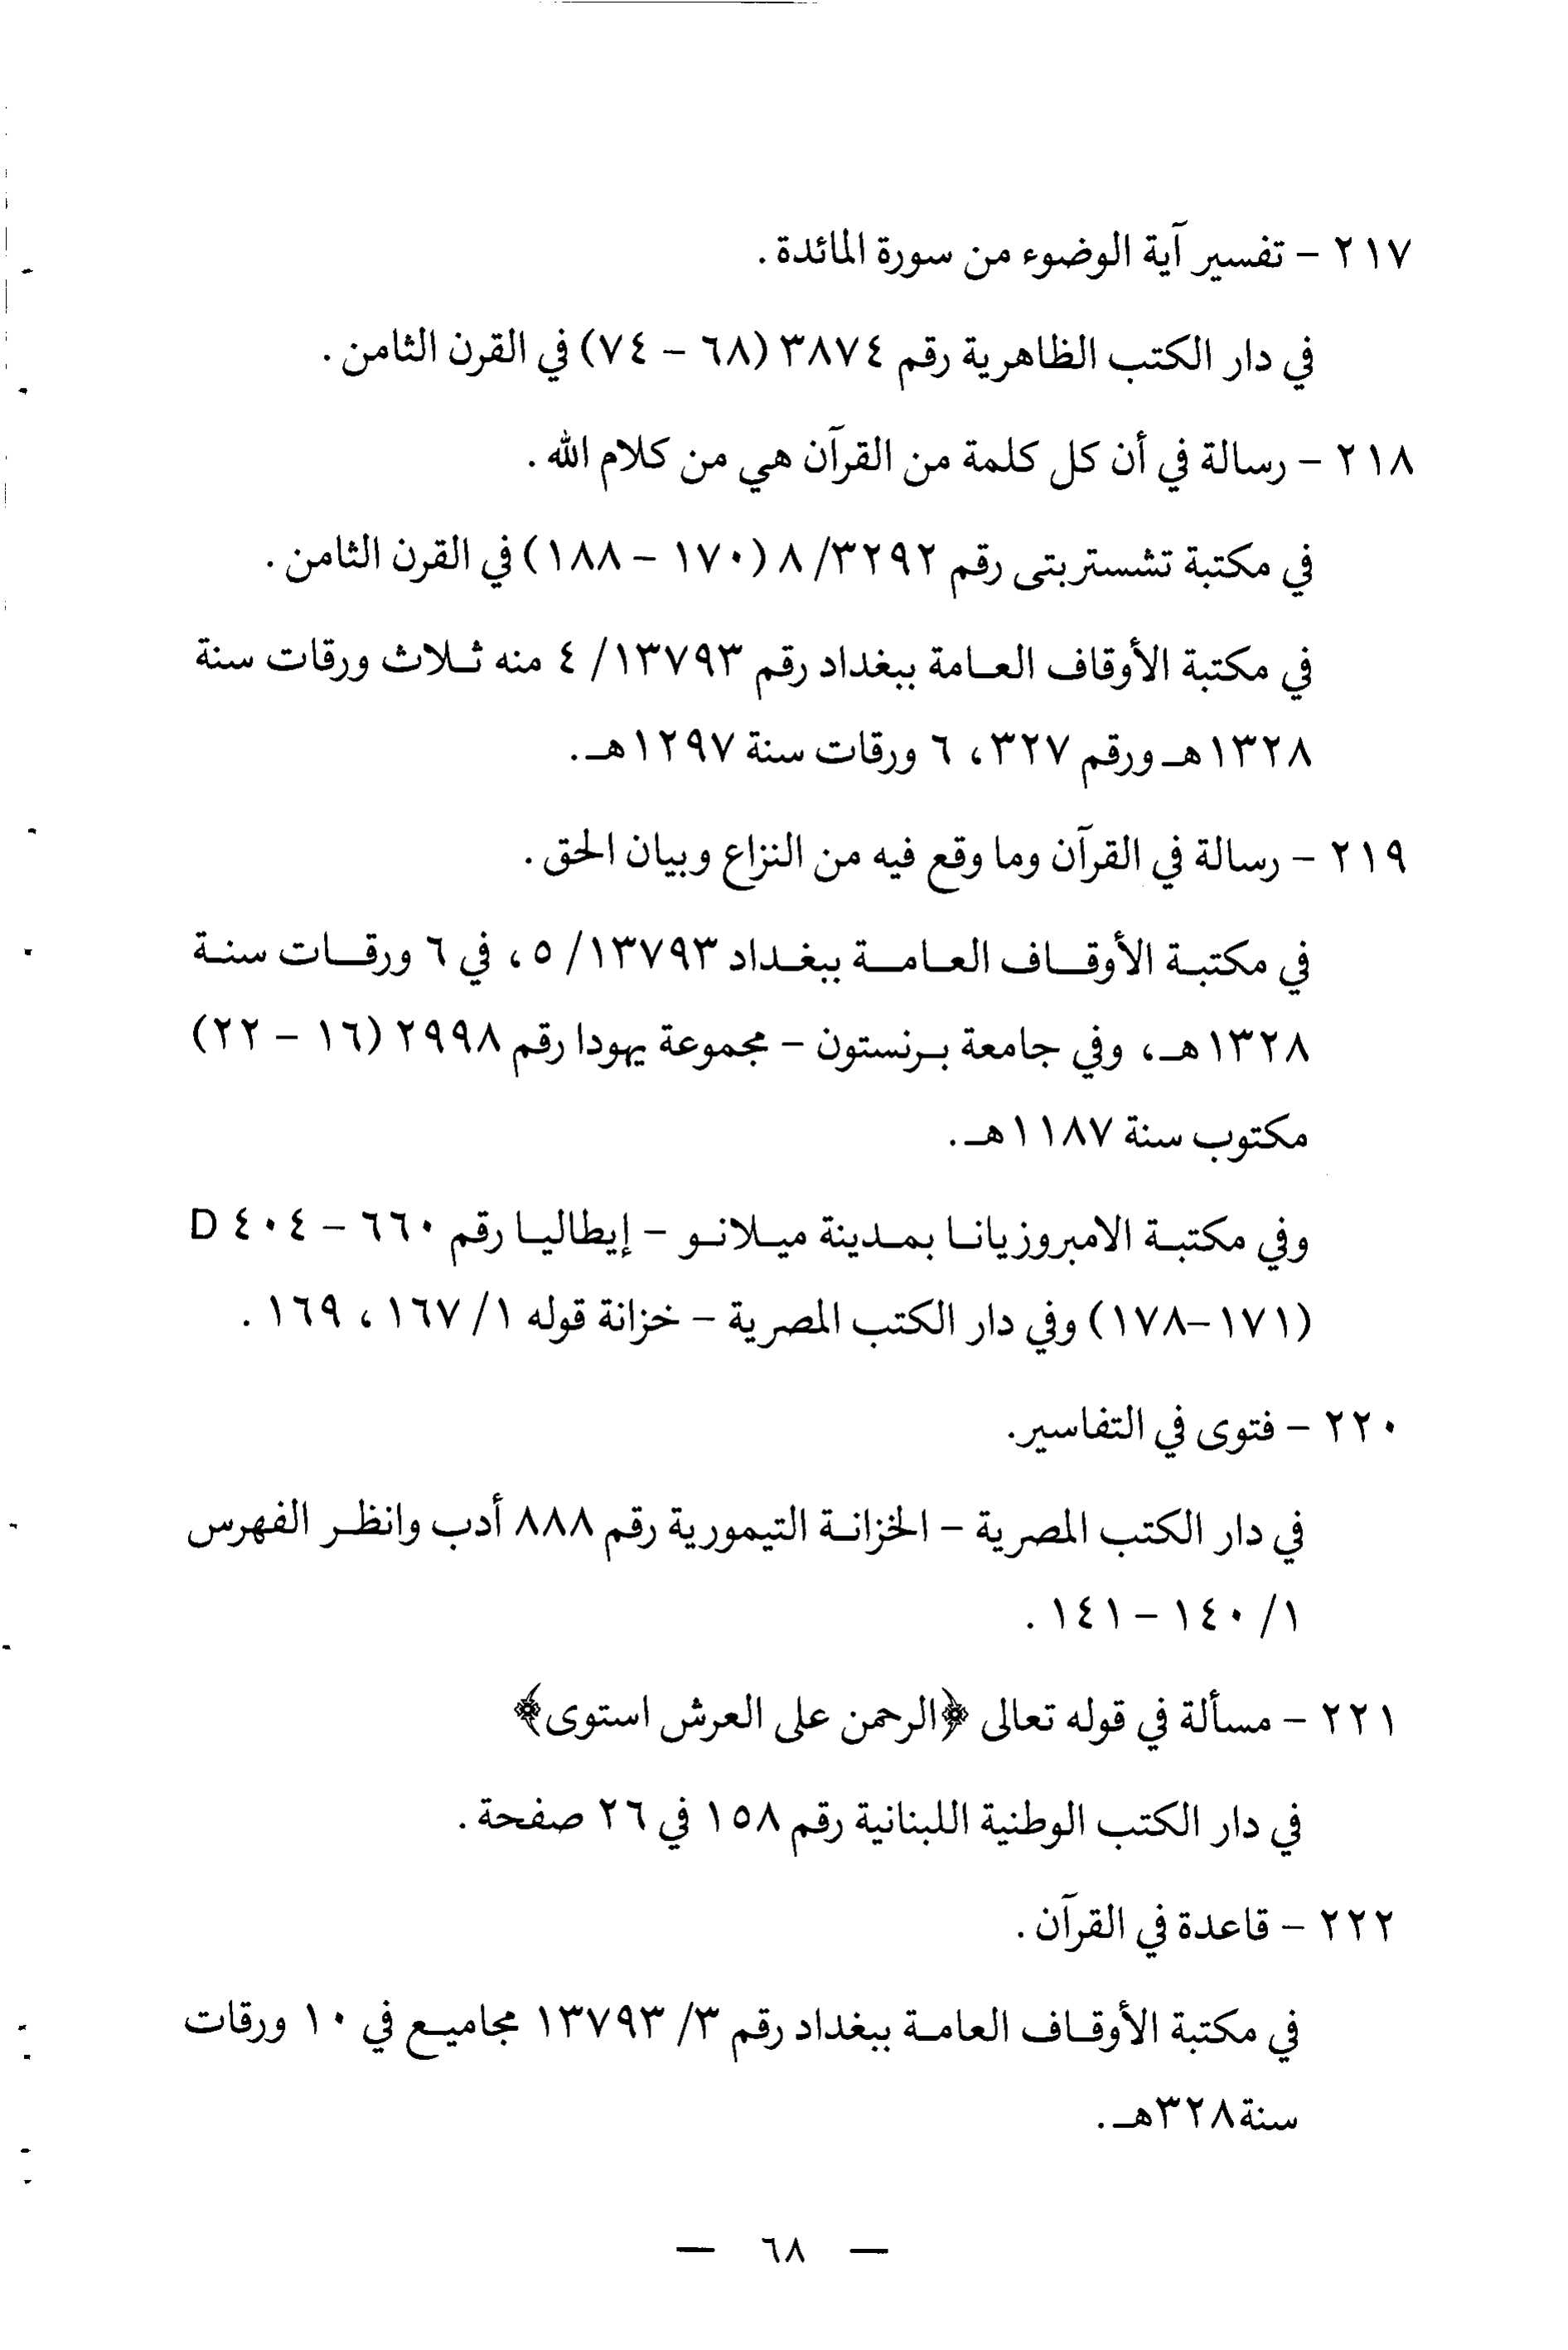 ٢١٧ – تفسير آية الوضوء من سورة المائدة .
في دار الكتب الظاهرية رقم ٣٨٧٤ (٦٨ – ٧٤) في القرن الثامن .
٢١٨ – رسالة في أن كل كلمة من القرآن هي من كلام الله .
في مكتبة تشستربتى رقم ٣٢٩٢/ ٨ (١٧٠ – ١٨٨) في القرن الثامن .
في مكتبة الأوقاف العامة ببغداد رقم ١٣٧٩٣/ ٤ منه ثلاث ورقات سنة
١٣٢٨هـ ورقم ٣٢٧، ٦ ورقات سنة ١٢٩٧هـ.
٢١٩ – رسالة في القرآن وما وقع فيه من النزاع وبيان الحق .
في مكتبة الأوقاف العامة ببغداد ١٣٧٩٣/ ٥، في ٦ ورقات سنة
١٣٢٨هـ، وفي جامعة برنستون – مجموعة يهودا رقم ٢٩٩٨ (١٦ – ٢٢)
مكتوب سنة ١١٨٧هـ.
وفي مكتبة الامبروزيانا بمدينة ميلانو – إيطاليا رقم ٦٦٠ – ٤٠٤ D
(١٧١–١٧٨) وفي دار الكتب المصرية – خزانة قوله ١/ ١٦٧، ١٦٩ .
٢٢٠ – فتوى في التفاسير.
في دار الكتب المصرية – الخزانة التيمورية رقم ٨٨٨ أدب وانظر الفهرس
١/ ١٤٠ – ١٤١ .
٢٢١ – مسألة في قوله تعالى ﴿الرحمن على العرش استوى﴾
في دار الكتب الوطنية اللبنانية رقم ١٥٨ في ٢٦ صفحة .
٢٢٢ – قاعدة في القرآن .
في مكتبة الأوقاف العامة ببغداد رقم ٣/ ١٣٧٩٣ مجاميع في ١٠ ورقات
سنة٣٢٨هـ.
— ٦٨ —